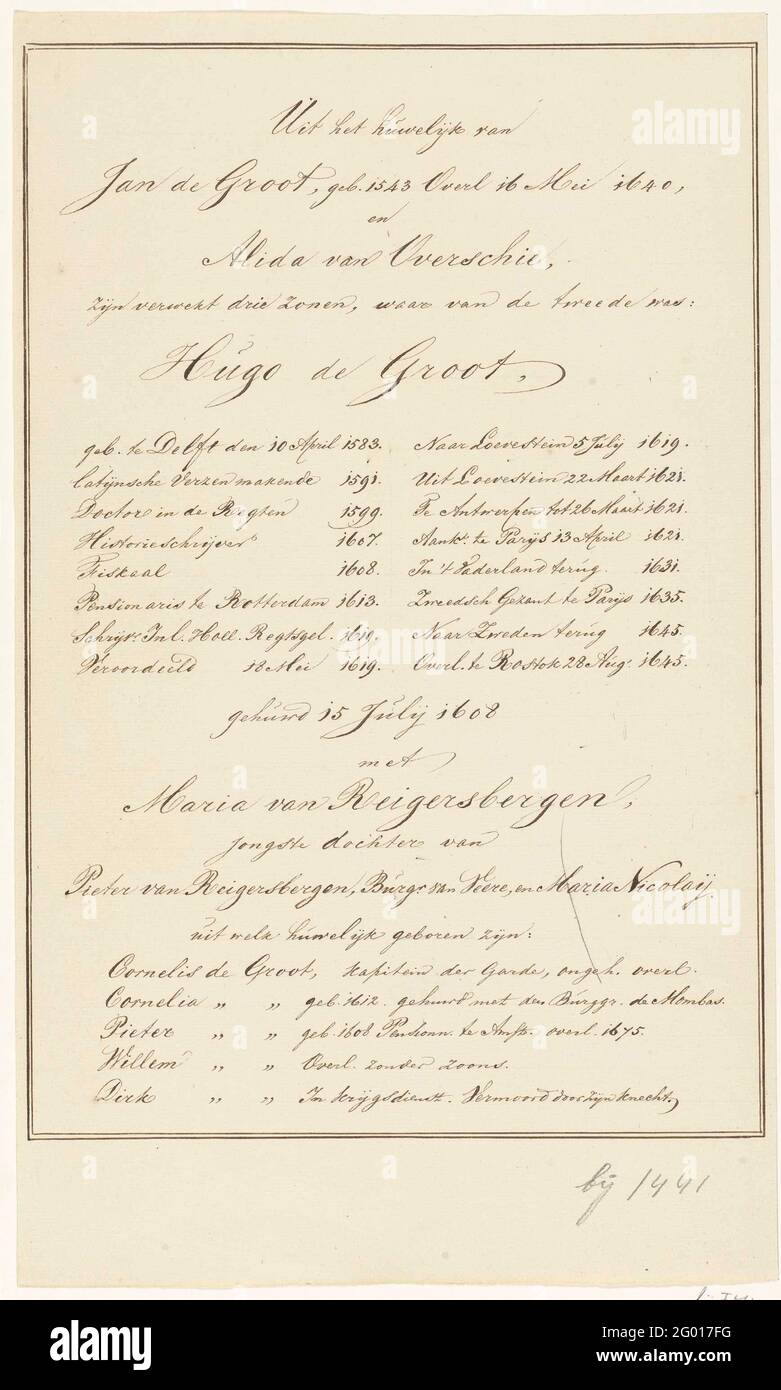 Uit het huwelijk van
Jan de Groot, geb. 1543 Overl 16 Mei 1640,
en
Alida van Overschie,
zijn verwekt drie zonen, waar van de tweede was:
Hugo de Groot,
geb. te Delft den 10 April 1583. Naar Loevestein 5 July 1619.
Latijnsche Verzen makende 1591. Uit Loevestein 22 Maart 1621.
Doctor in de Regten 1599. Te Antwerpen tot 26 Maart 1621.
Historieschrijver 1607. Aank. te Parijs 13 April 1621.
Fiskaal 1608. In 't Vaderland terug. 1631.
Pensionaris te Rotterdam 1613. Zweedsch Gezant te Parijs 1635.
Schrijv. Inl. Holl. Regtsgel. 1619. Naar Zweden terug 1645.
Veroordeeld 18 Mei 1619. Overl. te Rostok 28 Aug. 1645.
gehuwd 15 Julij 1608
met
Maria van Reigersbergen,
jongste dochter van
Pieter van Reigersbergen, Burgr van Veere, en Maria Nicolaij
uit welk huwelijk geboren zijn:
Cornelis de Groot, kapitein der Garde, ongeh. overl.
Cornelia „ „ geb. 1612. gehuwd met den Burggr. de Mombas.
Pieter „ „ geb. 1608 Pensionn. te Amst. overl. 1675.
Willem „ „ Overl. zonder zoons.
Dirk „ „ In krijgsdienst. Vermoord door zijn knecht.
bij 1441
alamy
Image ID: 2G017FG
www.alamy.com